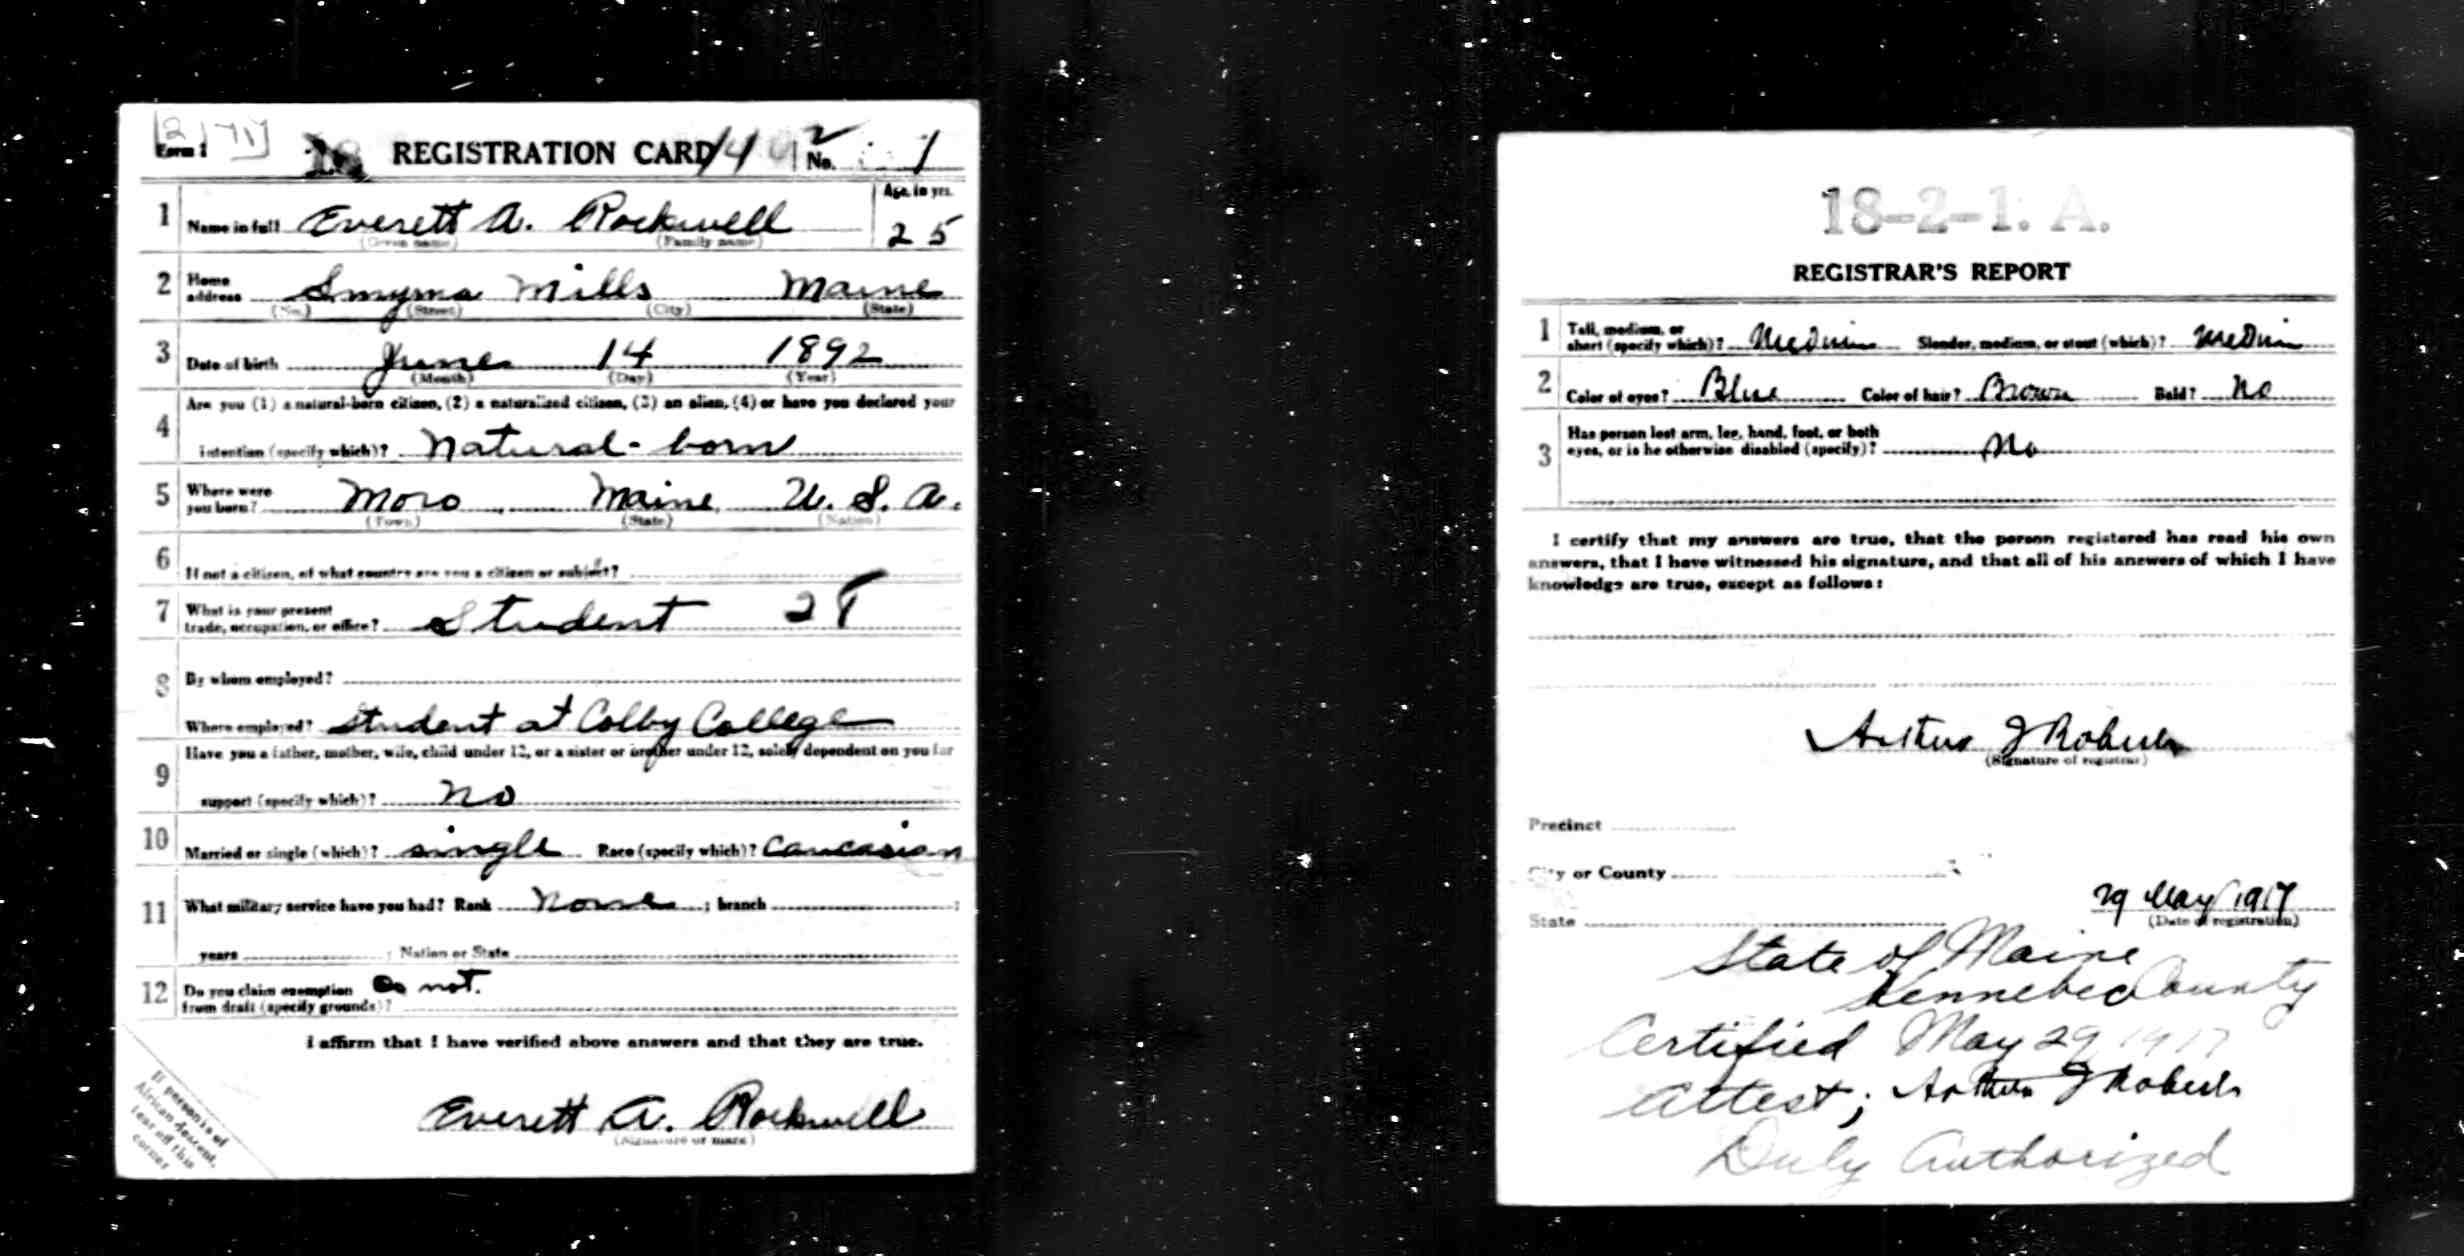 2171
Form 1 REGISTRATION CARD No. 1
1 Name in full Everett A. Rockwell Age, in yrs. 25
(Given name) (Family name)
2 Home address Smyrna Mills Maine
(No.) (Street) (City) (State)
3 Date of birth June 14 1892
(Month) (Day) (Year)
4 Are you (1) a natural-born citizen, (2) a naturalized citizen, (3) an alien, (4) or have you declared your
intention (specify which)? Natural-born
5 Where were you born? Moro, Maine, U. S. A.
(Town) (State) (Nation)
6 If not a citizen, of what country are you a citizen or subject?
7 What is your present trade, occupation, or office? Student
8 By whom employed?
Where employed? Student at Colby College
9 Have you a father, mother, wife, child under 12, or a sister or brother under 12, solely dependent on you for
support (specify which)? No
10 Married or single (which)? single Race (specify which)? Caucasian
11 What military service have you had? Rank None ; branch ;
years ; Nation or State
12 Do you claim exemption from draft (specify grounds)? Do not.
I affirm that I have verified above answers and that they are true.
Everett A. Rockwell
(Signature or mark)
If person is of
African descent,
tear off this
corner
18-2-1. A.
REGISTRAR'S REPORT
1 Tall, medium, or short (specify which)? Medium Slender, medium, or stout (which)? Medium
2 Color of eyes? Blue Color of hair? Brown Bald? No
3 Has person lost arm, leg, hand, foot, or both
eyes, or is he otherwise disabled (specify)? No
I certify that my answers are true, that the person registered has read his own
answers, that I have witnessed his signature, and that all of his answers of which I have
knowledge are true, except as follows:
Arthur J Roberts
(Signature of registrar)
Precinct
City or County
State
29 May 1917
(Date of registration)
State of Maine
Kennebec County
Certified May 29 1917
Attest; Arthur J Roberts
Duly Authorized